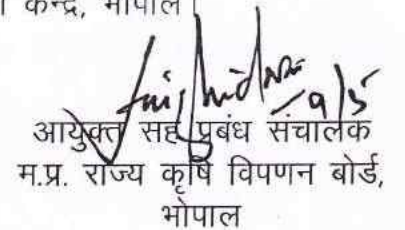 केन्द्र, भोपाल
19/5
आयुक्त सह प्रबंध संचालक
म.प्र. राज्य कृषि विपणन बोर्ड,
भोपाल